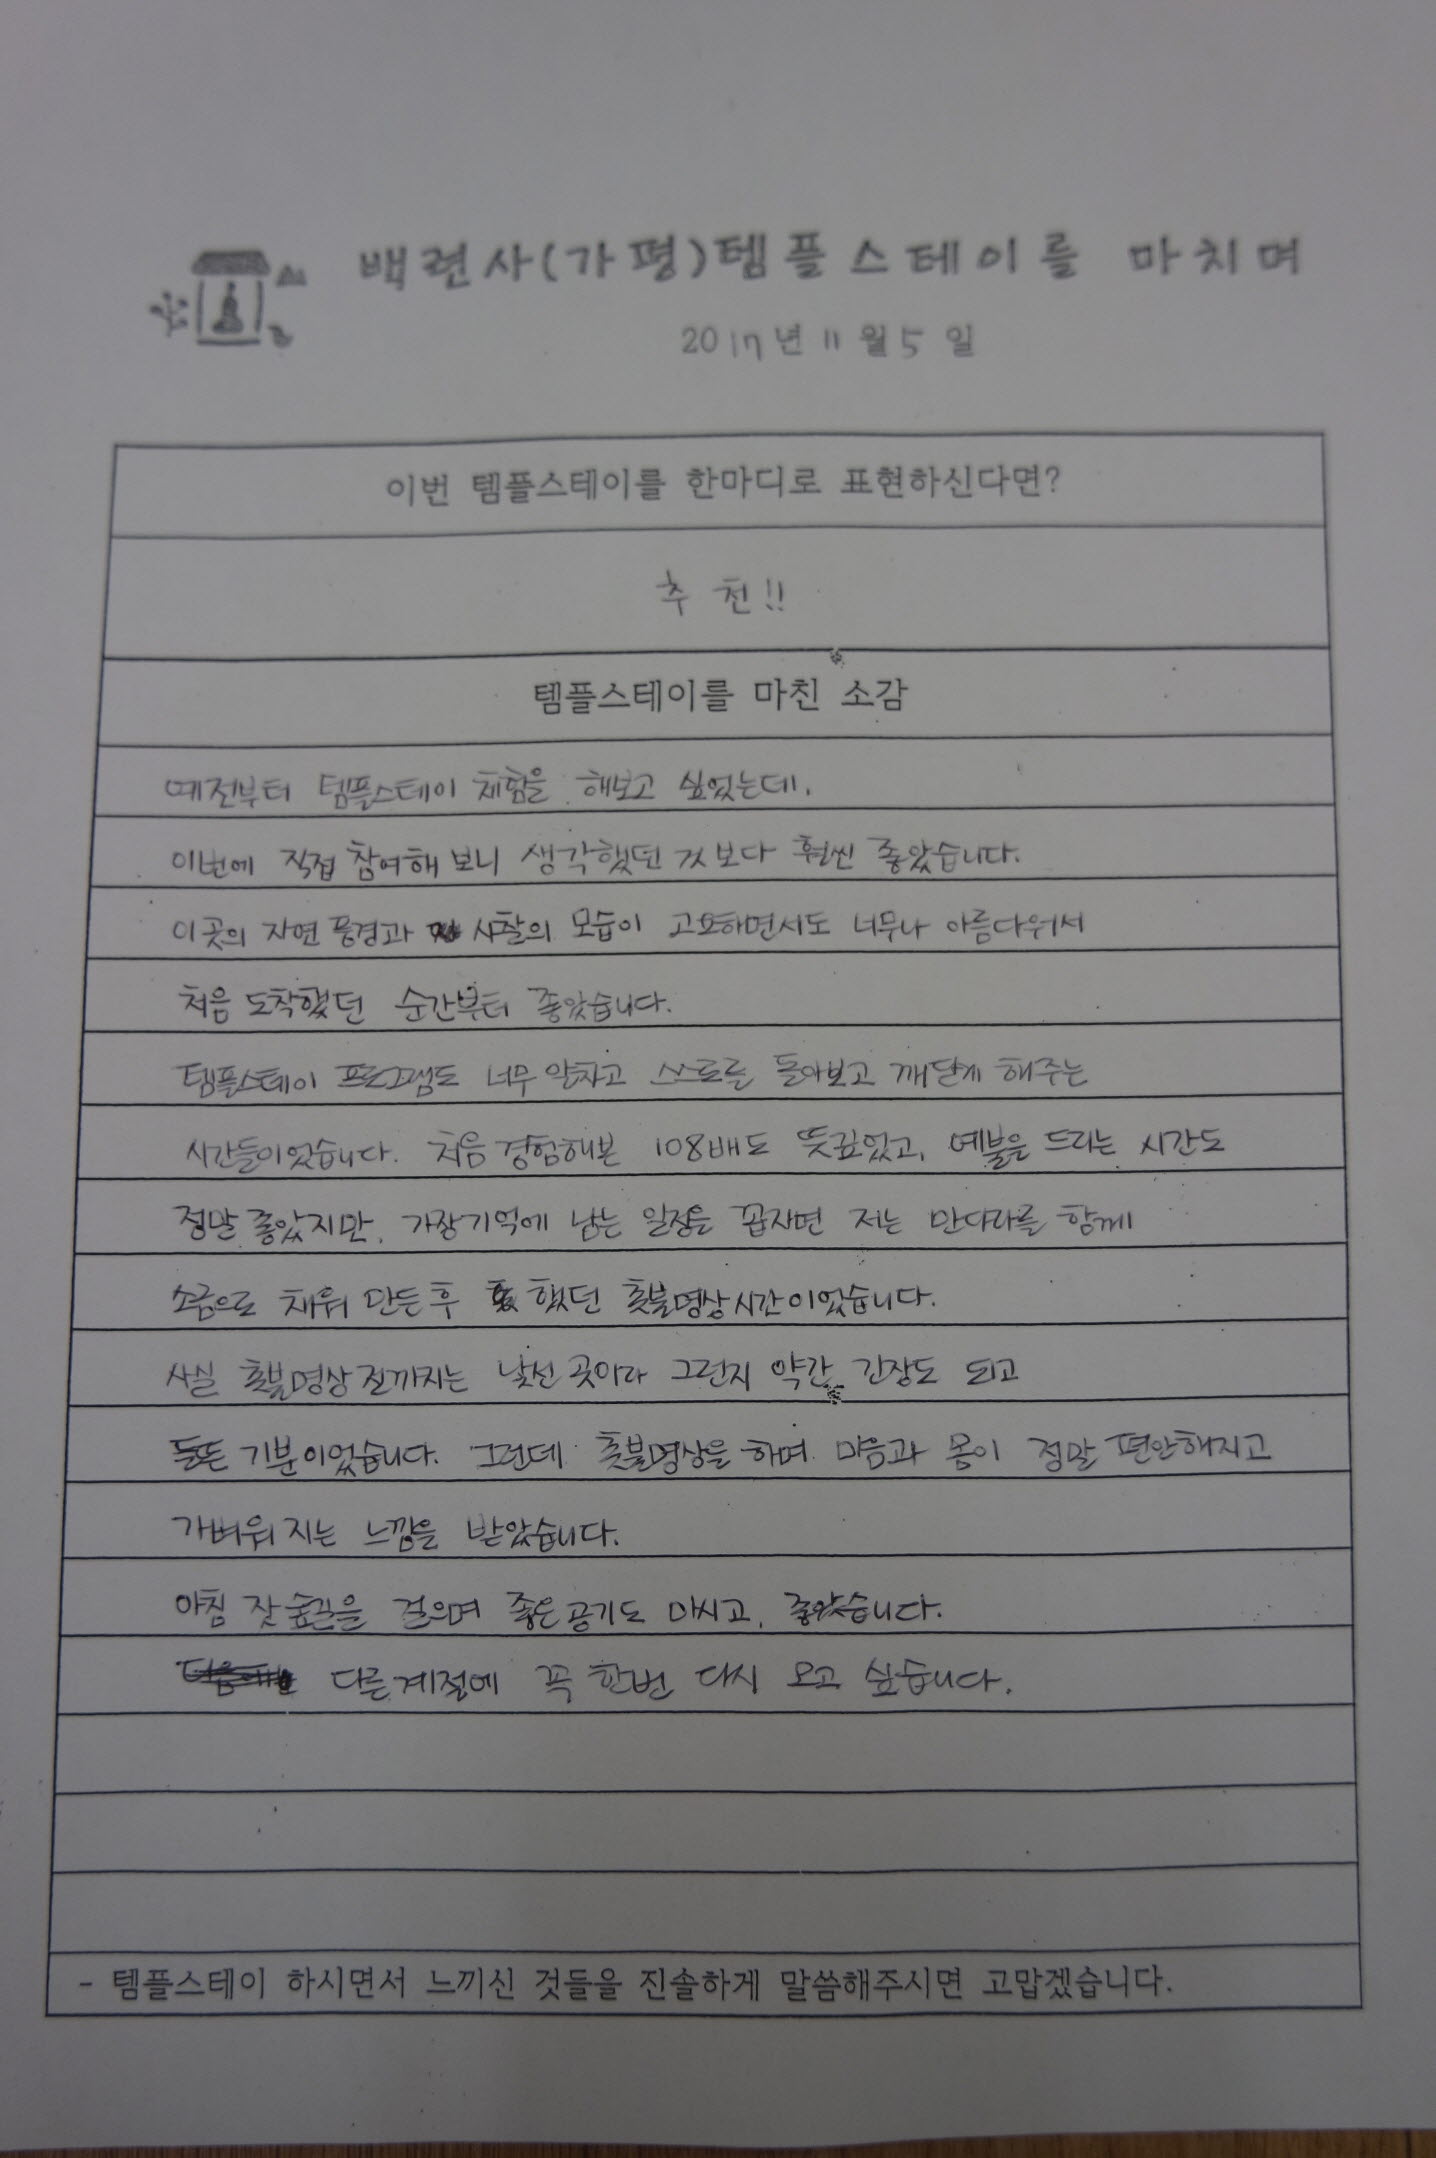 백련사(가평)템플스테이를 마치며
2017년 11월 5일
이번 템플스테이를 한마디로 표현하신다면?
추천!!
템플스테이를 마친 소감
예전부터 템플스테이 체험을 해보고 싶었는데,
이번에 직접 참여해 보니 생각했던 것보다 훨씬 좋았습니다.
이곳의 자연 풍경과 사찰의 모습이 고요하면서도 너무나 아름다워서
처음 도착했던 순간부터 좋았습니다.
템플스테이 프로그램도 너무 알차고 스스로를 돌아보고 깨닫게 해주는
시간들이었습니다. 처음 경험해본 108배도 뜻깊었고, 예불을 드리는 시간도
정말 좋았지만, 가장 기억에 남는 일정을 꼽자면 저는 만다라를 함께
소금으로 채워 만든 후 했던 촛불명상시간이었습니다.
사실 촛불명상 전까지는 낯선 곳이라 그런지 약간 긴장도 되고
들뜬 기분이었습니다. 그런데 촛불명상을 하며 마음과 몸이 정말 편안해지고
가벼워 지는 느낌을 받았습니다.
아침 잣숲길을 걸으며 좋은 공기도 마시고, 좋았습니다.
다른 계절에 꼭 한번 다시 오고 싶습니다.
- 템플스테이 하시면서 느끼신 것들을 진솔하게 말씀해주시면 고맙겠습니다.